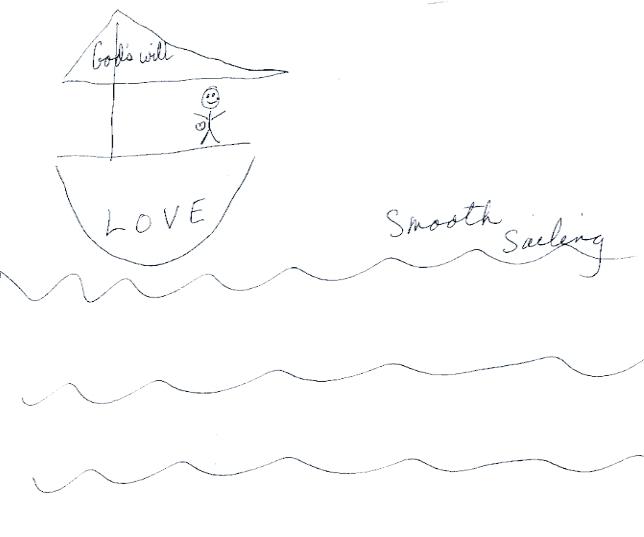 God's will
LOVE
Smooth
Sailing